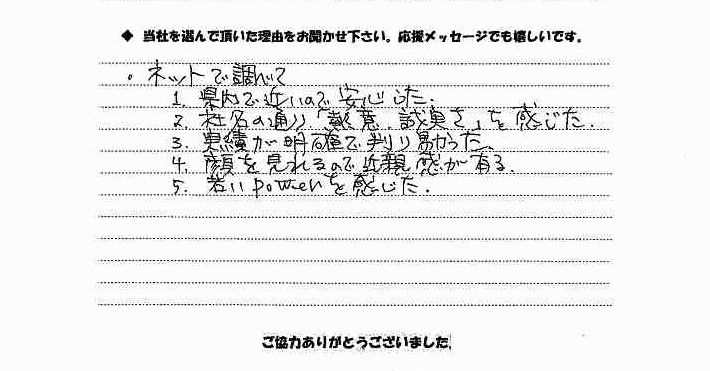 ◆ 当社を選んで頂いた理由をお聞かせ下さい。応援メッセージでも嬉しいです。
。ネットで調べて
1. 県内で近いので安心した.
2. 社名の通り「熱意 誠実さ」を感じた.
3. 実績が明確で判り易かった、
4. 顔を見れるので近親感が有る.
5. 若いpowerを感じた.
ご協力ありがとうございました。